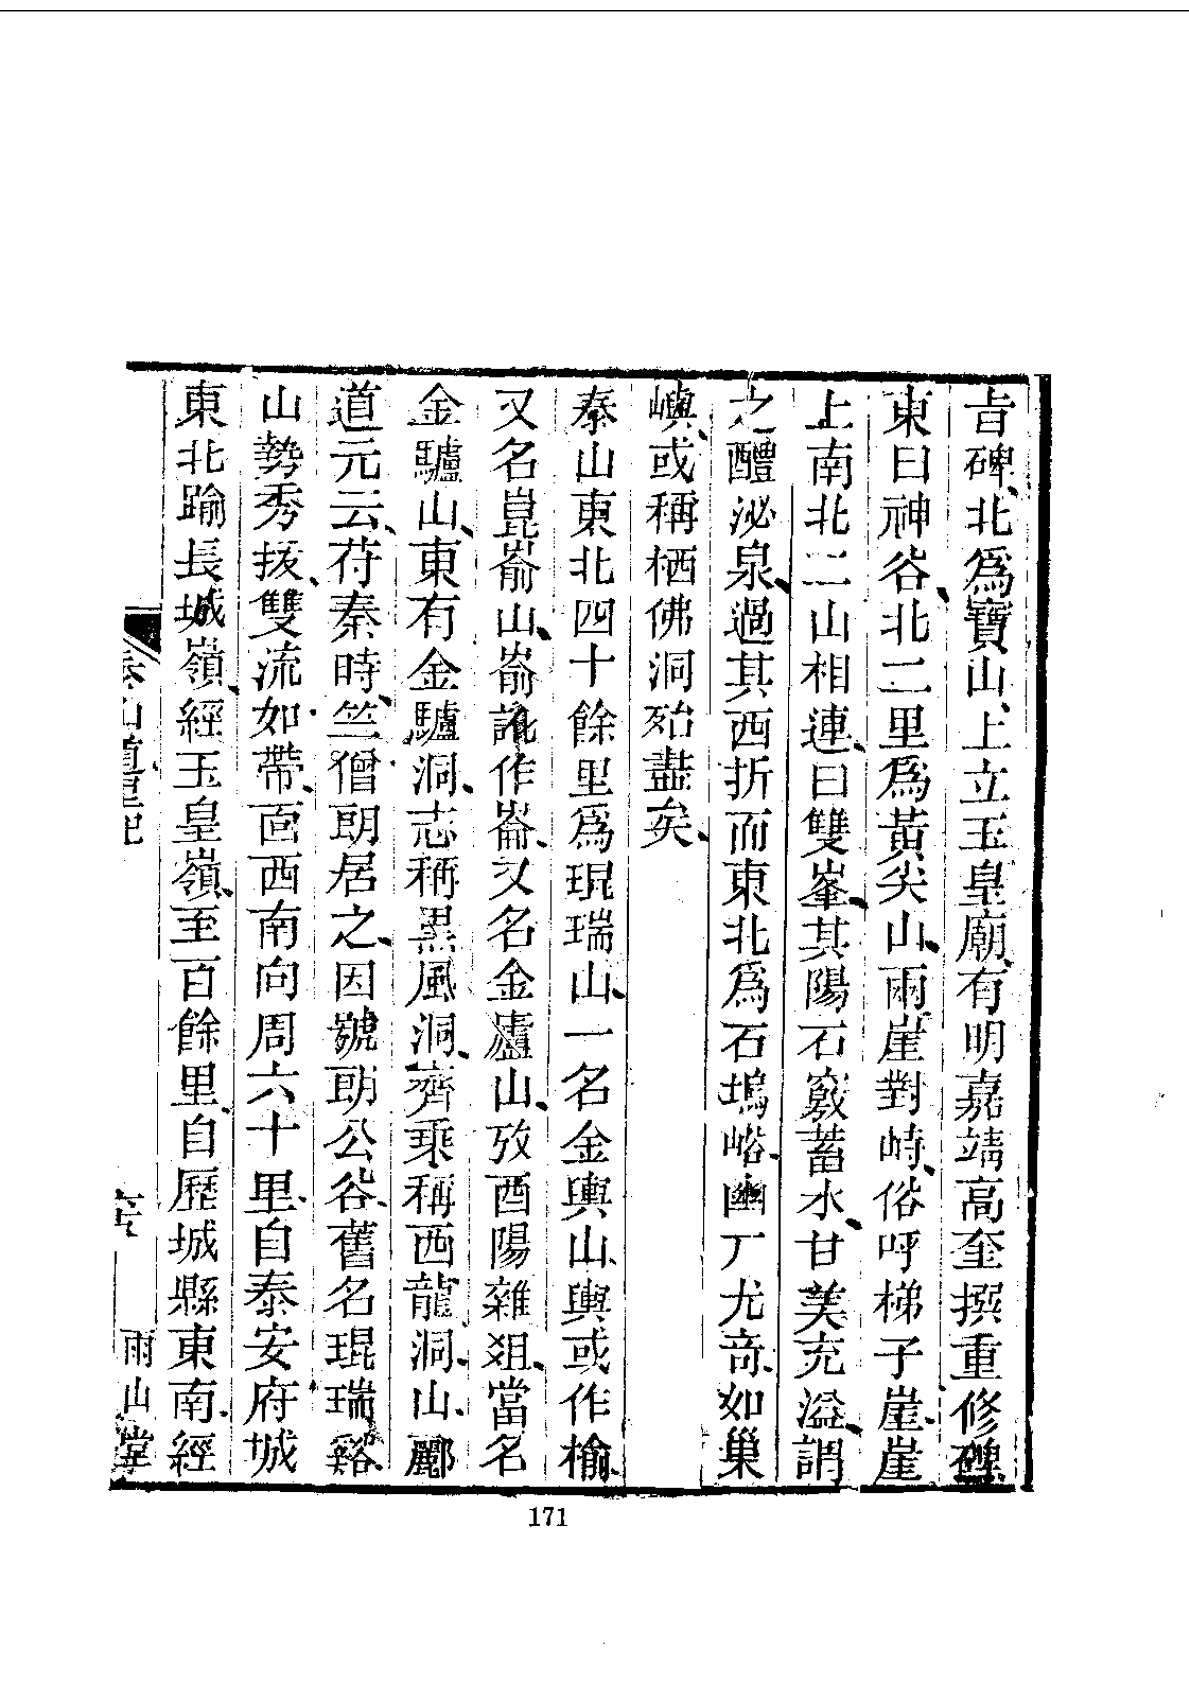 古碑、北爲寶山、上立玉皇廟、有明嘉靖高奎撰重修碑
東曰神谷、北二里爲黃尖山、兩崖對峙、俗呼梯子崖、崖
上南北二山相連、曰雙峯、其陽石竅蓄水、甘美充溢、謂
之醴泌泉、過其西折而東北爲石塢峪、幽丁尤竒、如巢
嶼、或稱栖佛洞殆盡矣、
泰山東北四十餘里爲琨瑞山、一名金輿山、輿或作榆、
又名崑崳山、崳訛作崙、又名金廬山、攷酉陽雜俎、當名
金驢山、東有金驢洞、志稱黑風洞、齊乘稱西龍洞山、酈
道元云、苻秦時、竺僧朗居之、因號朗公谷、舊名琨瑞谿
山勢秀拔、雙流如帶、面西南向周六十里、自泰安府城
東北踰長城嶺、經玉皇嶺、至百餘里、自歷城縣東南、經
泰山道里記
雨山堂
171